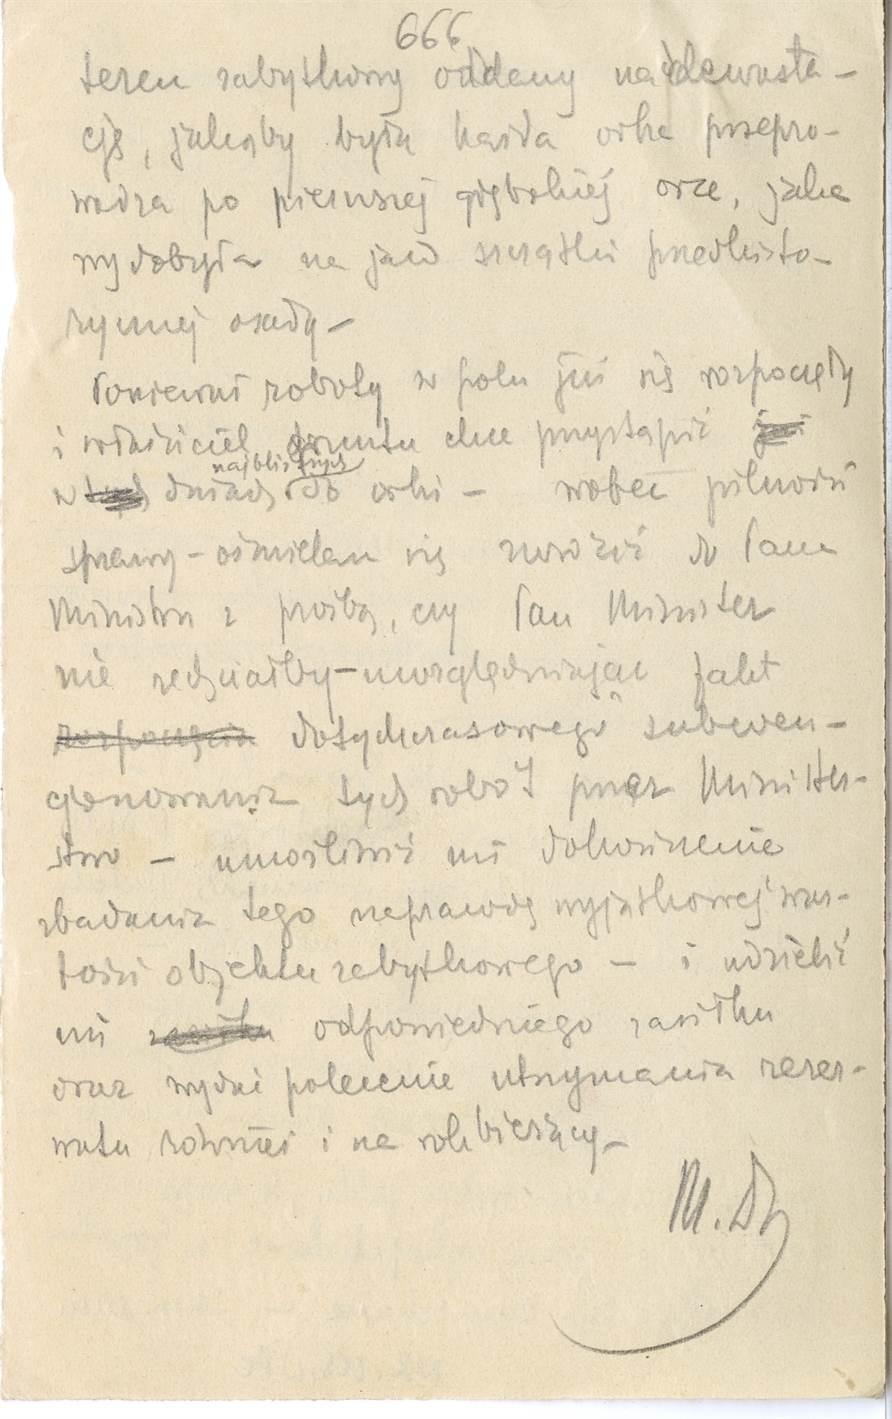 666
teren zabytkowy oddany na dewasta-
cję, jakąby była każda orka przepro-
wadza po pierwszej głębokiej orce, jaka
wydobyła na jaw szczątki przedhisto-
rycznej osady -
Ponieważ roboty w polu już się rozpoczęły
i właściciel gruntu chce przystąpić już
najbliższych
w tych dniach do orki - wobec pilności
sprawy - ośmielam się zwrócić do Pana
Ministra z prośbą, czy Pan Minister
nie zechciałby - uwzględniając fakt
rozpoczęcia dotychczasowego subwen-
cjonowania tych robót przez Minister-
stwo - umożliwić mi dokończenie
zbadania tego naprawdę wyjątkowej war-
tości objektu zabytkowego - i udzielić
mi zasiłku odpowiedniego zasiłku
oraz wydać polecenie utrzymania rezer-
watu również i na rok bieżący -
M. D